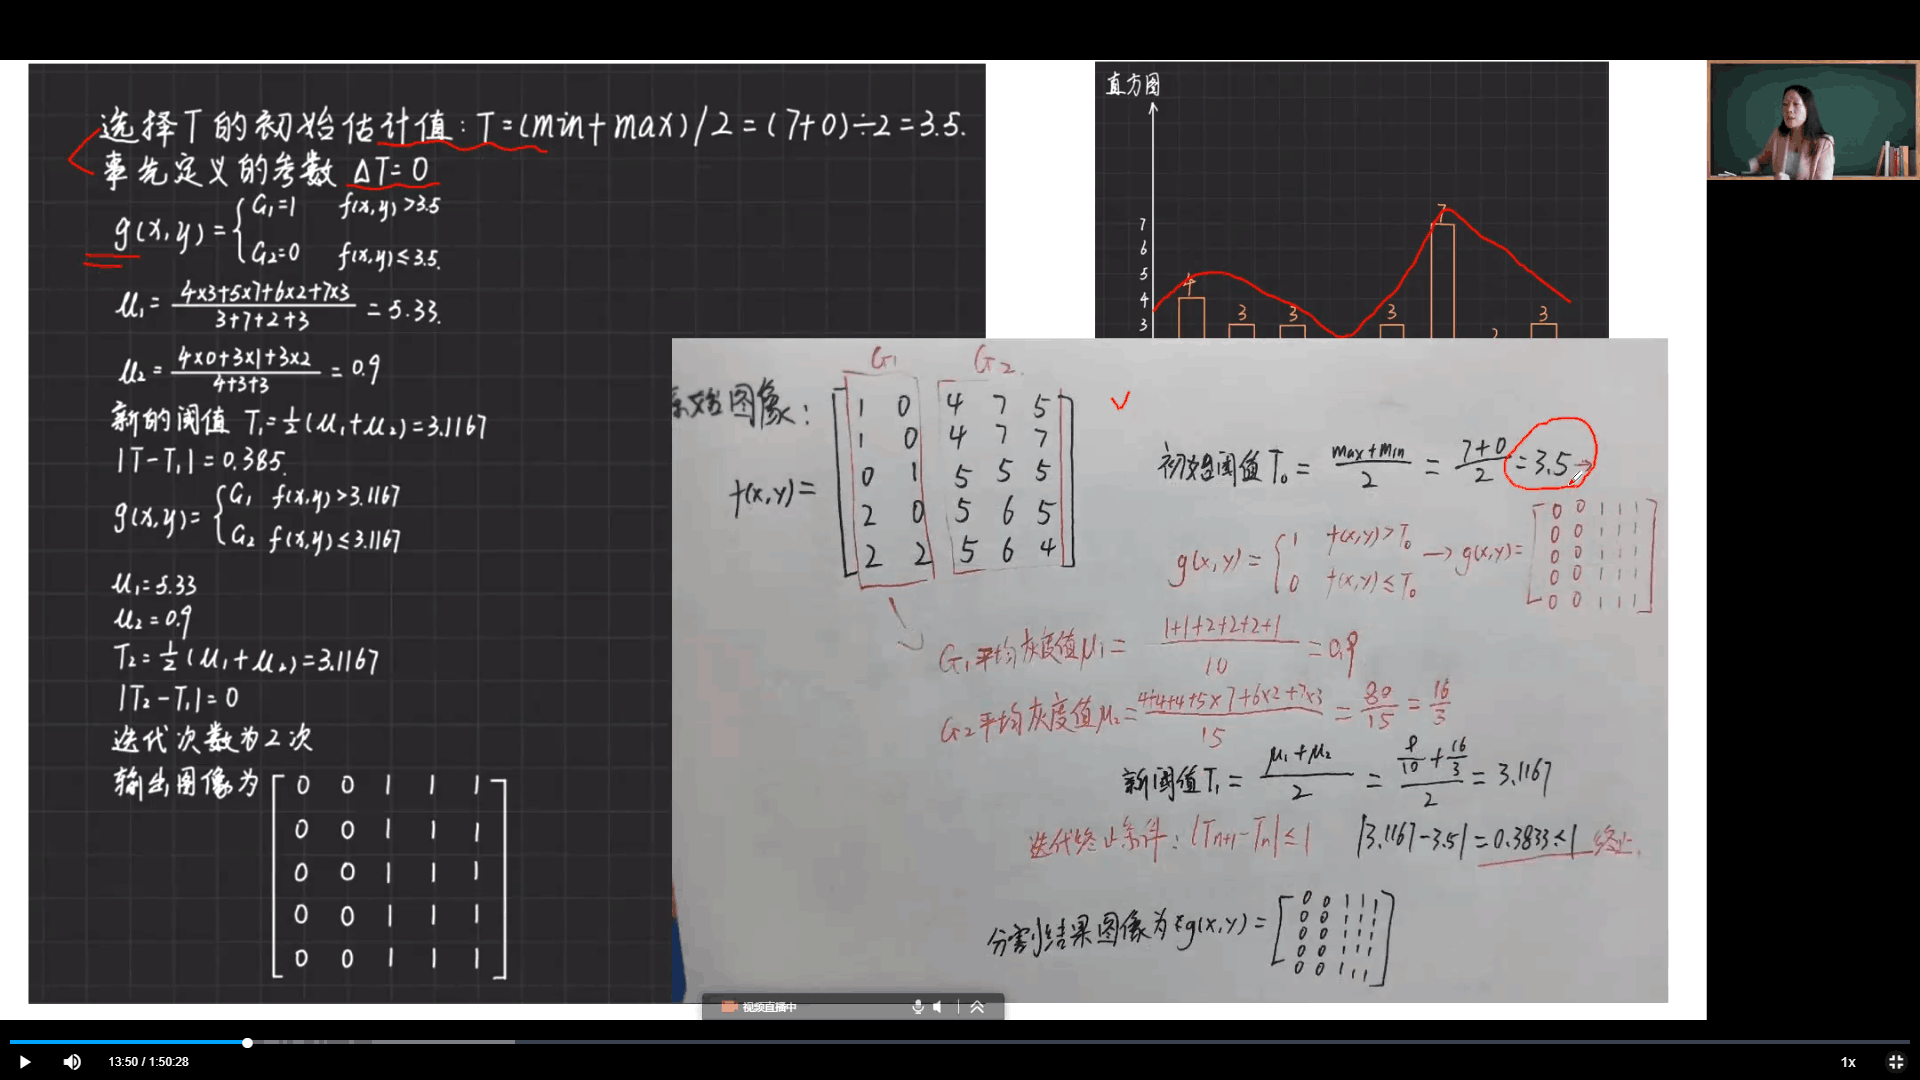 选择T的初始估计值：T=(min+max)/2=(7+0)÷2=3.5.
事先定义的参数 ΔT=0
g(x,y)={G₁=1 f(x,y)>3.5
G₂=0 f(x,y)≤3.5.
μ₁=(4×3+5×7+6×2+7×3)/(3+7+2+3)=5.33.
μ₂=(4×0+3×1+3×2)/(4+3+3)=0.9
新的阈值 T₁=½(μ₁+μ₂)=3.1167
|T-T₁|=0.385.
g(x,y)={G₁ f(x,y)>3.1167
G₂ f(x,y)≤3.1167
μ₁=5.33
μ₂=0.9
T₂=½(μ₁+μ₂)=3.1167
|T₂-T₁|=0
迭代次数为2次
输出图像为
0 0 1 1 1
0 0 1 1 1
0 0 1 1 1
0 0 1 1 1
0 0 1 1 1
直方图
7
6
5
4
3
4 3 3 3 7 2 3
G₁ G₂.
原始图像：
f(x,y)=
1 0 4 7 5
1 0 4 7 7
0 1 5 5 5
2 0 5 6 5
2 2 5 6 4
初始阈值T₀=(max+min)/2=(7+0)/2=3.5
g(x,y)={1 f(x,y)>T₀
0 f(x,y)≤T₀
→g(x,y)=
0 0 1 1 1
0 0 1 1 1
0 0 1 1 1
0 0 1 1 1
0 0 1 1 1
G₁平均灰度值μ₁=(1+1+2+2+2+1)/10=0.9
G₂平均灰度值μ₂=(4+4+4+5×7+6×2+7×3)/15=80/15=16/3
新阈值T₁=(μ₁+μ₂)/2=(9/10+16/3)/2=3.1167
迭代终止条件：|Tn+1-Tn|≤1 |3.1167-3.5|=0.3833≤1 终止.
分割结果图像为g(x,y)=
0 0 1 1 1
0 0 1 1 1
0 0 1 1 1
0 0 1 1 1
0 0 1 1 1
视频直播中
13:50 / 1:50:28
1x